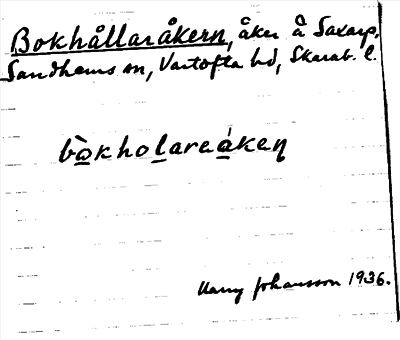 Bokhållaråkern, åker å Saxarp,
Sandhems sn, Vartofta hd, Skarab. l.
bo̲khol̲areå̲ken
Harry Johansson 1936.